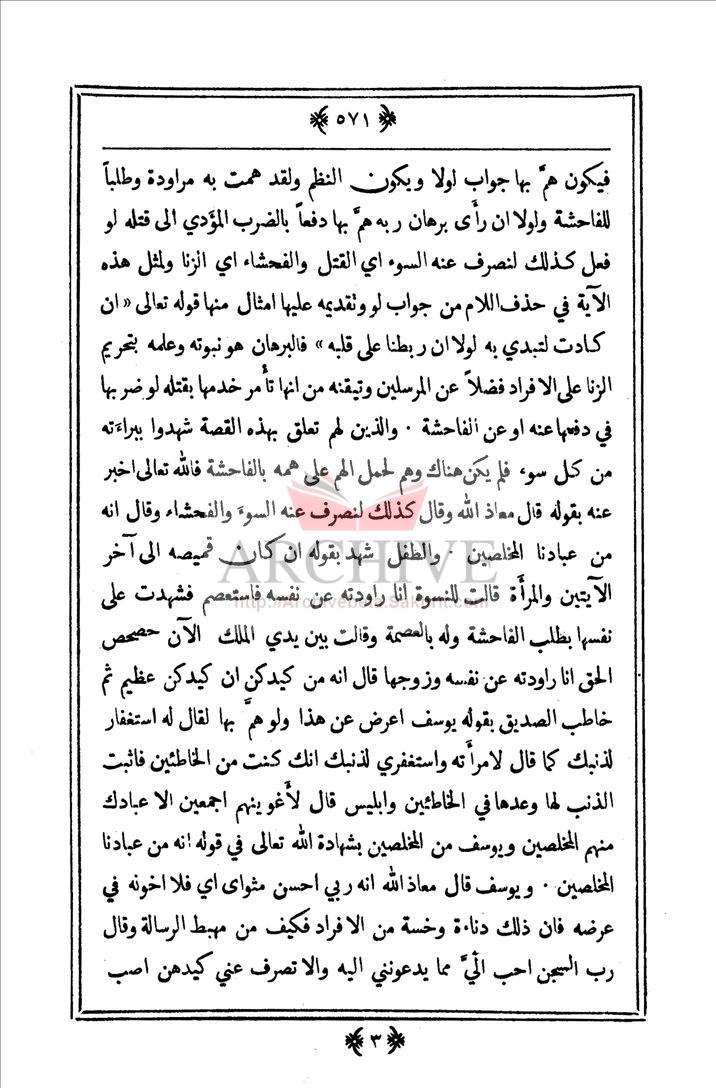 ٥٧١
فيكون همَّ بها جواب لولا ويكون النظم ولقد همت به مراودة وطلباً
للفاحشة ولولا ان رأى برهان ربه همَّ بها دفعاً بالضرب المؤدي الى قتله لو
فعل كذلك لنصرف عنه السوء اي القتل والفحشاء اي الزنا ولمثل هذه
الآية في حذف اللام من جواب لو وتقديمه عليها امثال منها قوله تعالى «ان
كادت لتبدي به لولا ان ربطنا على قلبه» فالبرهان هو نبوته وعلمه بتحريم
الزنا على الافراد فضلاً عن المرسلين وتيقنه من انها تأمر خدمها بقتله لو ضربها
في دفعها عنه او عن الفاحشة . والذين لهم تعلق بهذه القصة شهدوا ببراءته
من كل سوء فلم يكن هناك وهم لحمل الهم على همه بالفاحشة فالله تعالى اخبر
عنه بقوله قال معاذ الله وقال كذلك لنصرف عنه السوء والفحشاء وقال انه
من عبادنا المخلصين . والطفل شهد بقوله ان كان قميصه الى آخر
الآيتين والمرأة قالت للنسوة انا راودته عن نفسه فاستعصم فشهدت على
نفسها بطلب الفاحشة وله بالعصمة وقالت بين يدي الملك الآن حصحص
الحق انا راودته عن نفسه وزوجها قال انه من كيدكن ان كيدكن عظيم ثم
خاطب الصديق بقوله يوسف اعرض عن هذا ولو همَّ بها لقال له استغفار
لذنبك كما قال لامرأته واستغفري لذنبك انك كنت من الخاطئين فاثبت
الذنب لها وعدها في الخاطئين وابليس قال لأغوينهم اجمعين الا عبادك
منهم المخلصين ويوسف من المخلصين بشهادة الله تعالى في قوله انه من عبادنا
المخلصين . ويوسف قال معاذ الله انه ربي احسن مثواى اي فلا اخونه في
عرضه فان ذلك دناءة وخسة من الافراد فكيف من مهبط الرسالة وقال
رب السجن احب اليَّ مما يدعونني اليه والا تصرف عني كيدهن اصب
٣
ARCHIVE
http://Archivebeta.Sakhrit.com